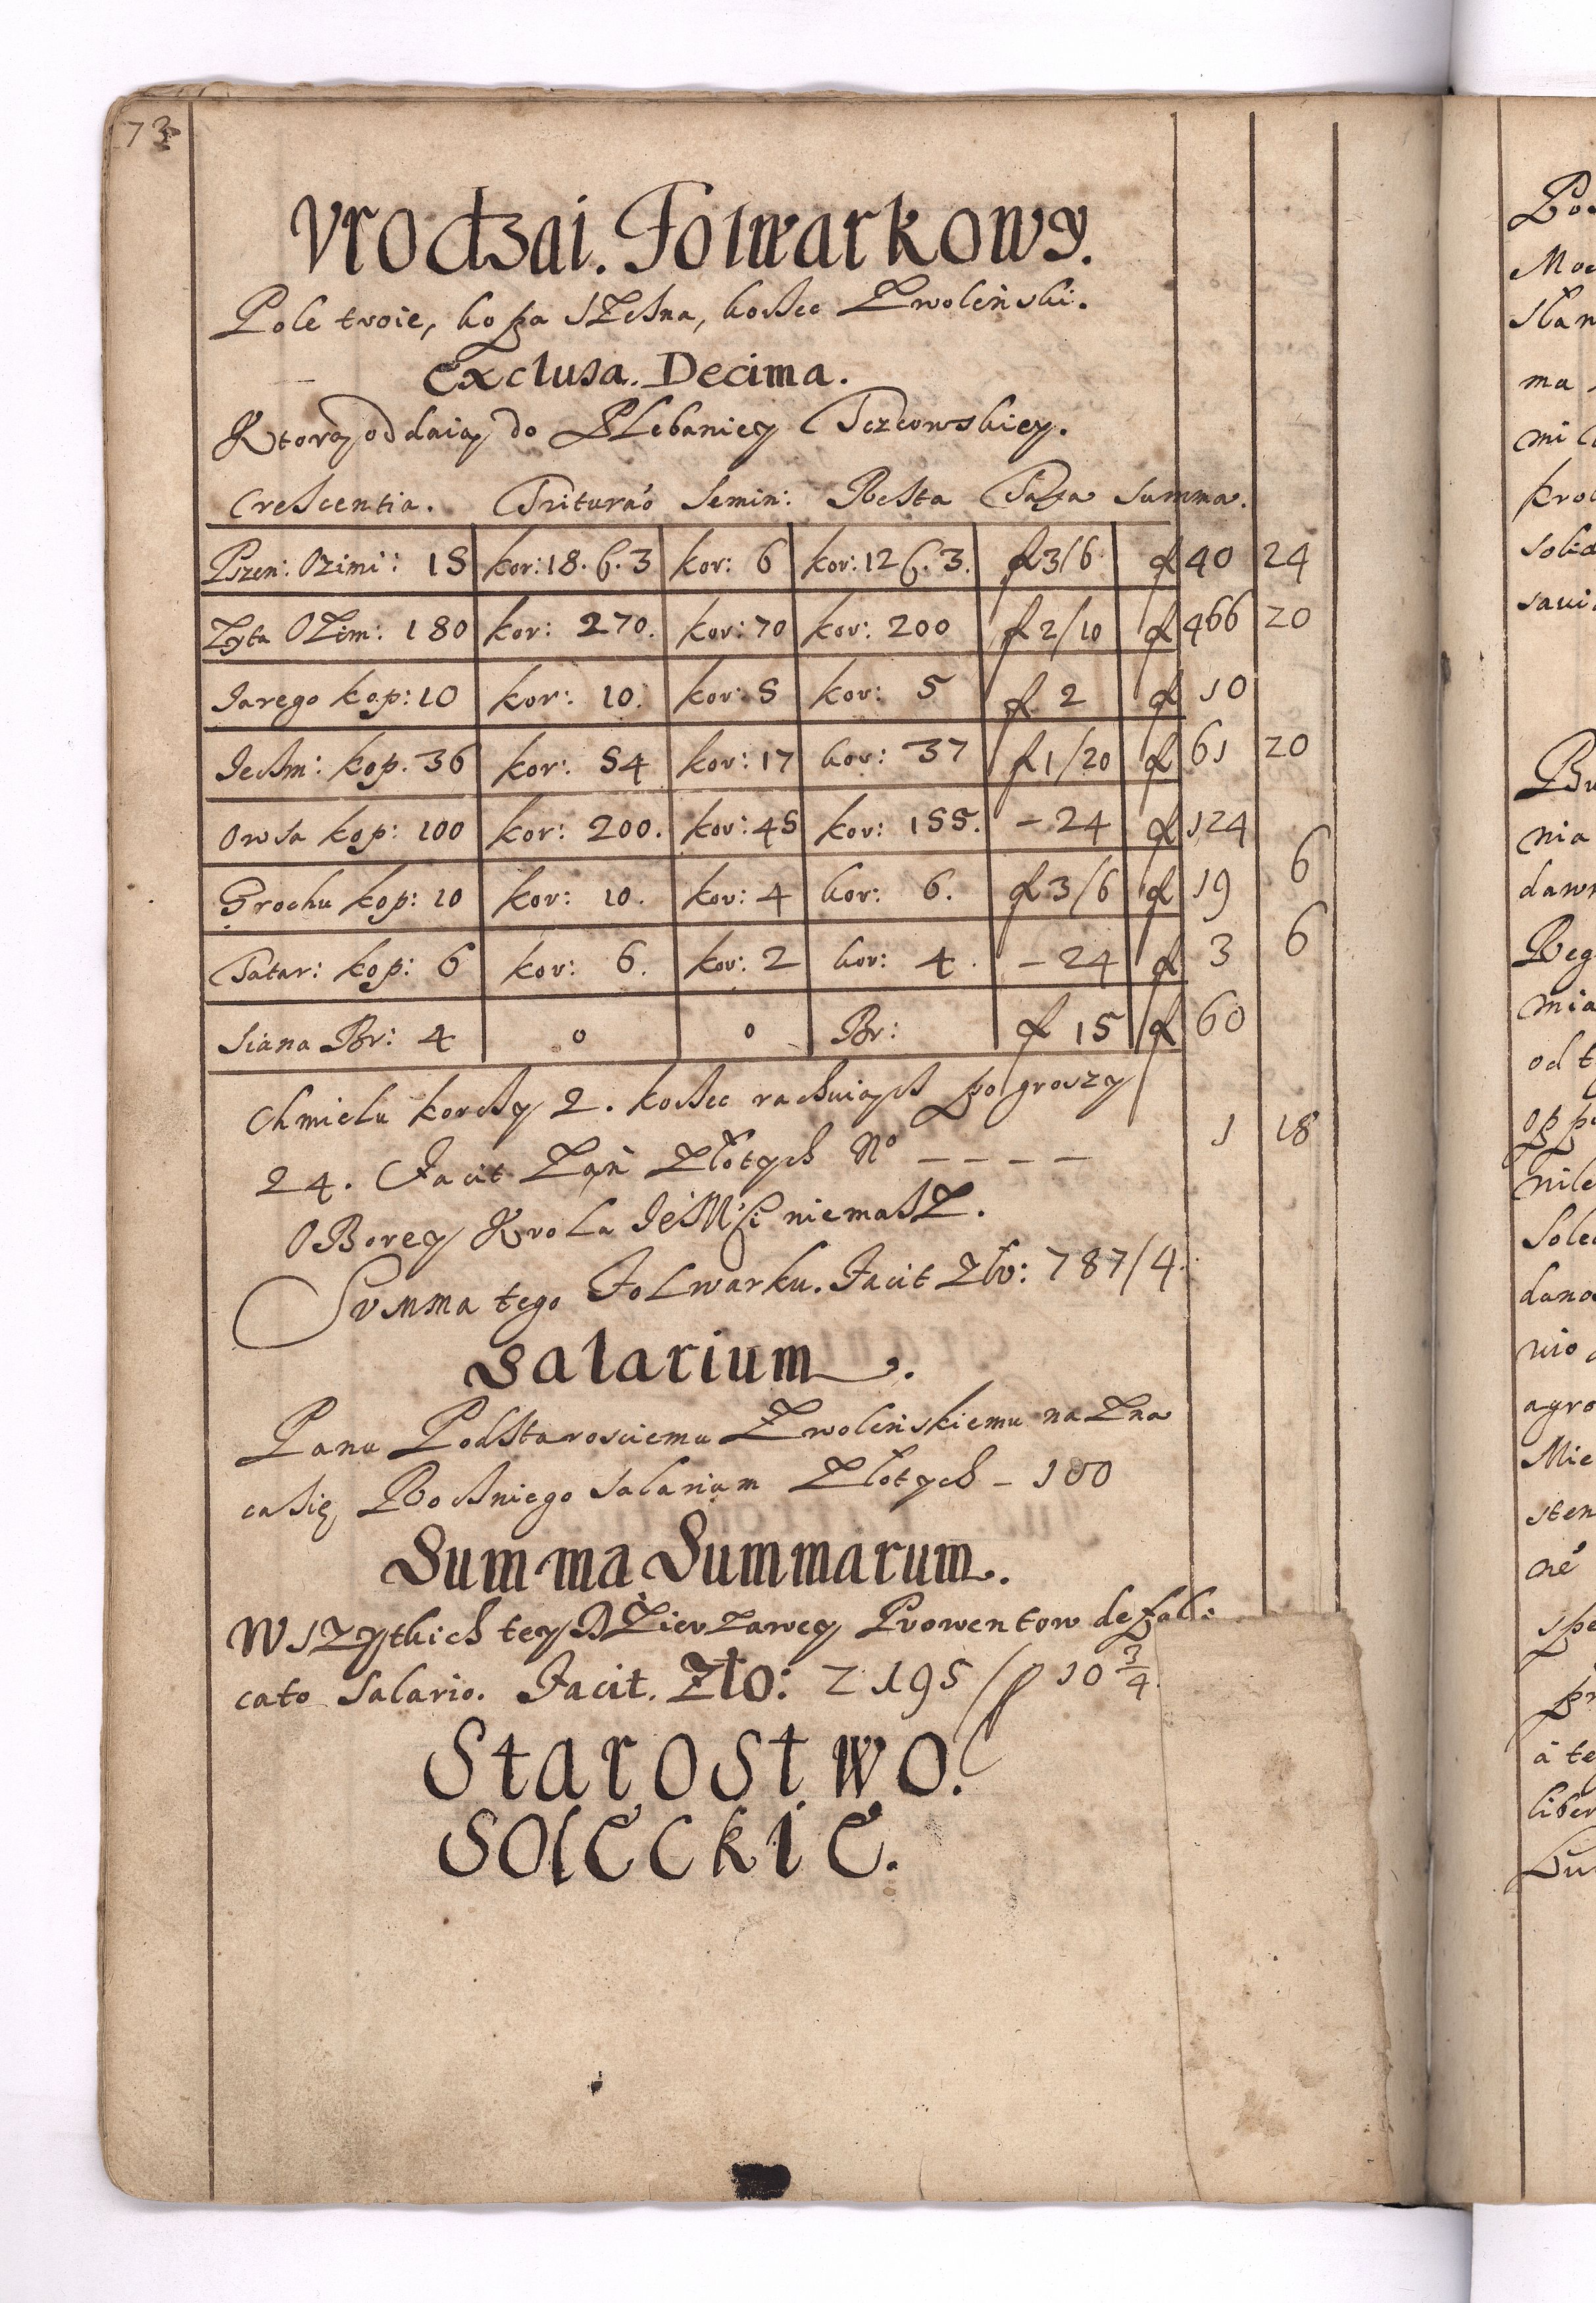 73
Vrodzai. Folwarkowy.
Pole troie, kopa sześna, koszec Zwoleński.
Exclusa. Decima.
Ktorą oddaią do Plebaniey Tczowskiey.
Crescentia. Triturão Semin: Resta Taxa Summa.
Pszen: Ozimi: 15 kor: 18. 6. 3 kor: 6 kor: 12 6. 3. f 3/6 f 40 24
Zyta OZim: 180 kor: 270. kor: 70 kor: 200 f 2/10 f 466 20
Iarego kop: 10 kor: 10. kor: 5 kor: 5 f 2 f 10
Ięchm: kop. 36 kor: 54 kor: 17 kor: 37 f 1/20 f 61 20
Owsa kop: 100 kor: 200. kor: 45 kor: 155. - 24 f 124
Grochu kop: 10 kor: 10. kor: 4 kor: 6. f 3/6 f 19 6
Tatar: kop: 6 kor: 6. kor: 2 kor: 4. - 24 f 3 6
Siana Br: 4 0 0 Br: f 15 f 60
Chmielu korcy 2. koszec rachuiąch po groszy
24. Facit Zań Złotych No - - - - 1 18
OBorey Krola IéMści niemasz.
Summa tego Folwarku. Facit Zło: 787/4.
Salarium.
Panu Podstarosciemu Zwoleńskiemu na Zna
casię Rocznego Salarium Złotych - 100
Summa Summarum.
Wszytkich tey DZierzawey Prowentow defal:
cato Salario. Facit. Zło: 2195/ 10 3/4.
Starostwo.
Soleckie.